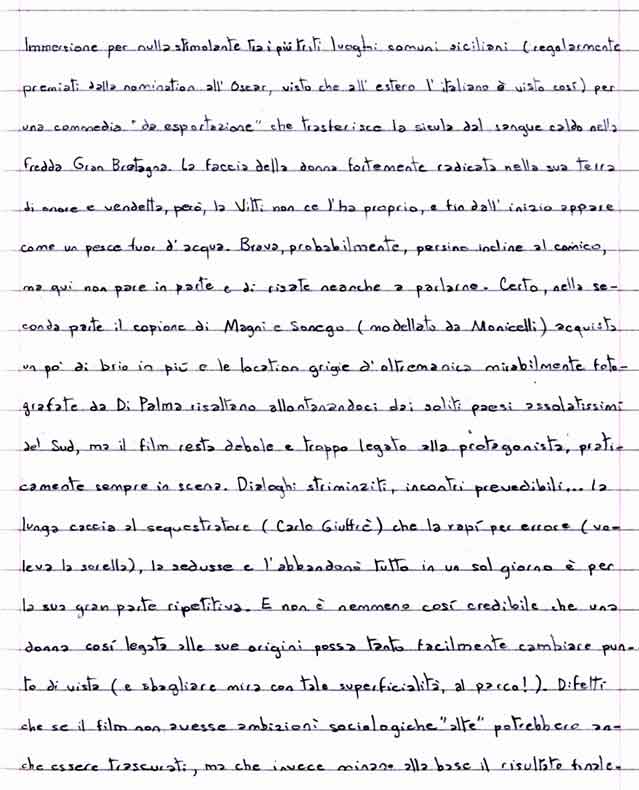 Immersione per nulla stimolante tra i più triti luoghi comuni siciliani (regolarmente
premiati dalla nomination all'Oscar, visto che all'estero l'italiano è visto così) per
una commedia "da esportazione" che trasferisce la sicula dal sangue caldo nella
fredda Gran Bretagna. La faccia della donna fortemente radicata nella sua terra
di onore e vendetta, però, la Vitti non ce l'ha proprio, e fin dall'inizio appare
come un pesce fuor d'acqua. Brava, probabilmente, persino incline al comico,
ma qui non pare in parte e di risate neanche a parlarne. Certo, nella se-
conda parte il copione di Magni e Sonego (modellato da Monicelli) acquista
un po' di brio in più e le location grigie d'oltremanica mirabilmente foto-
grafate da Di Palma risaltano allontanandoci dai soliti paesi assolatissimi
del Sud, ma il film resta debole e troppo legato alla protagonista, prati-
camente sempre in scena. Dialoghi striminziti, incontri prevedibili... La
lunga caccia al sequestratore (Carlo Giuffrè) che la rapì per errore (vo-
leva la sorella), la sedusse e l'abbandonò tutto in un sol giorno è per
la sua gran parte ripetitiva. E non è nemmeno così credibile che una
donna così legata alle sue origini possa tanto facilmente cambiare pun-
to di vista (e sbagliare mira con tale superficialità, al parco!). Difetti
che se il film non avesse ambizioni sociologiche "alte" potrebbero an-
che essere trascurati, ma che invece minano alla base il risultato finale.